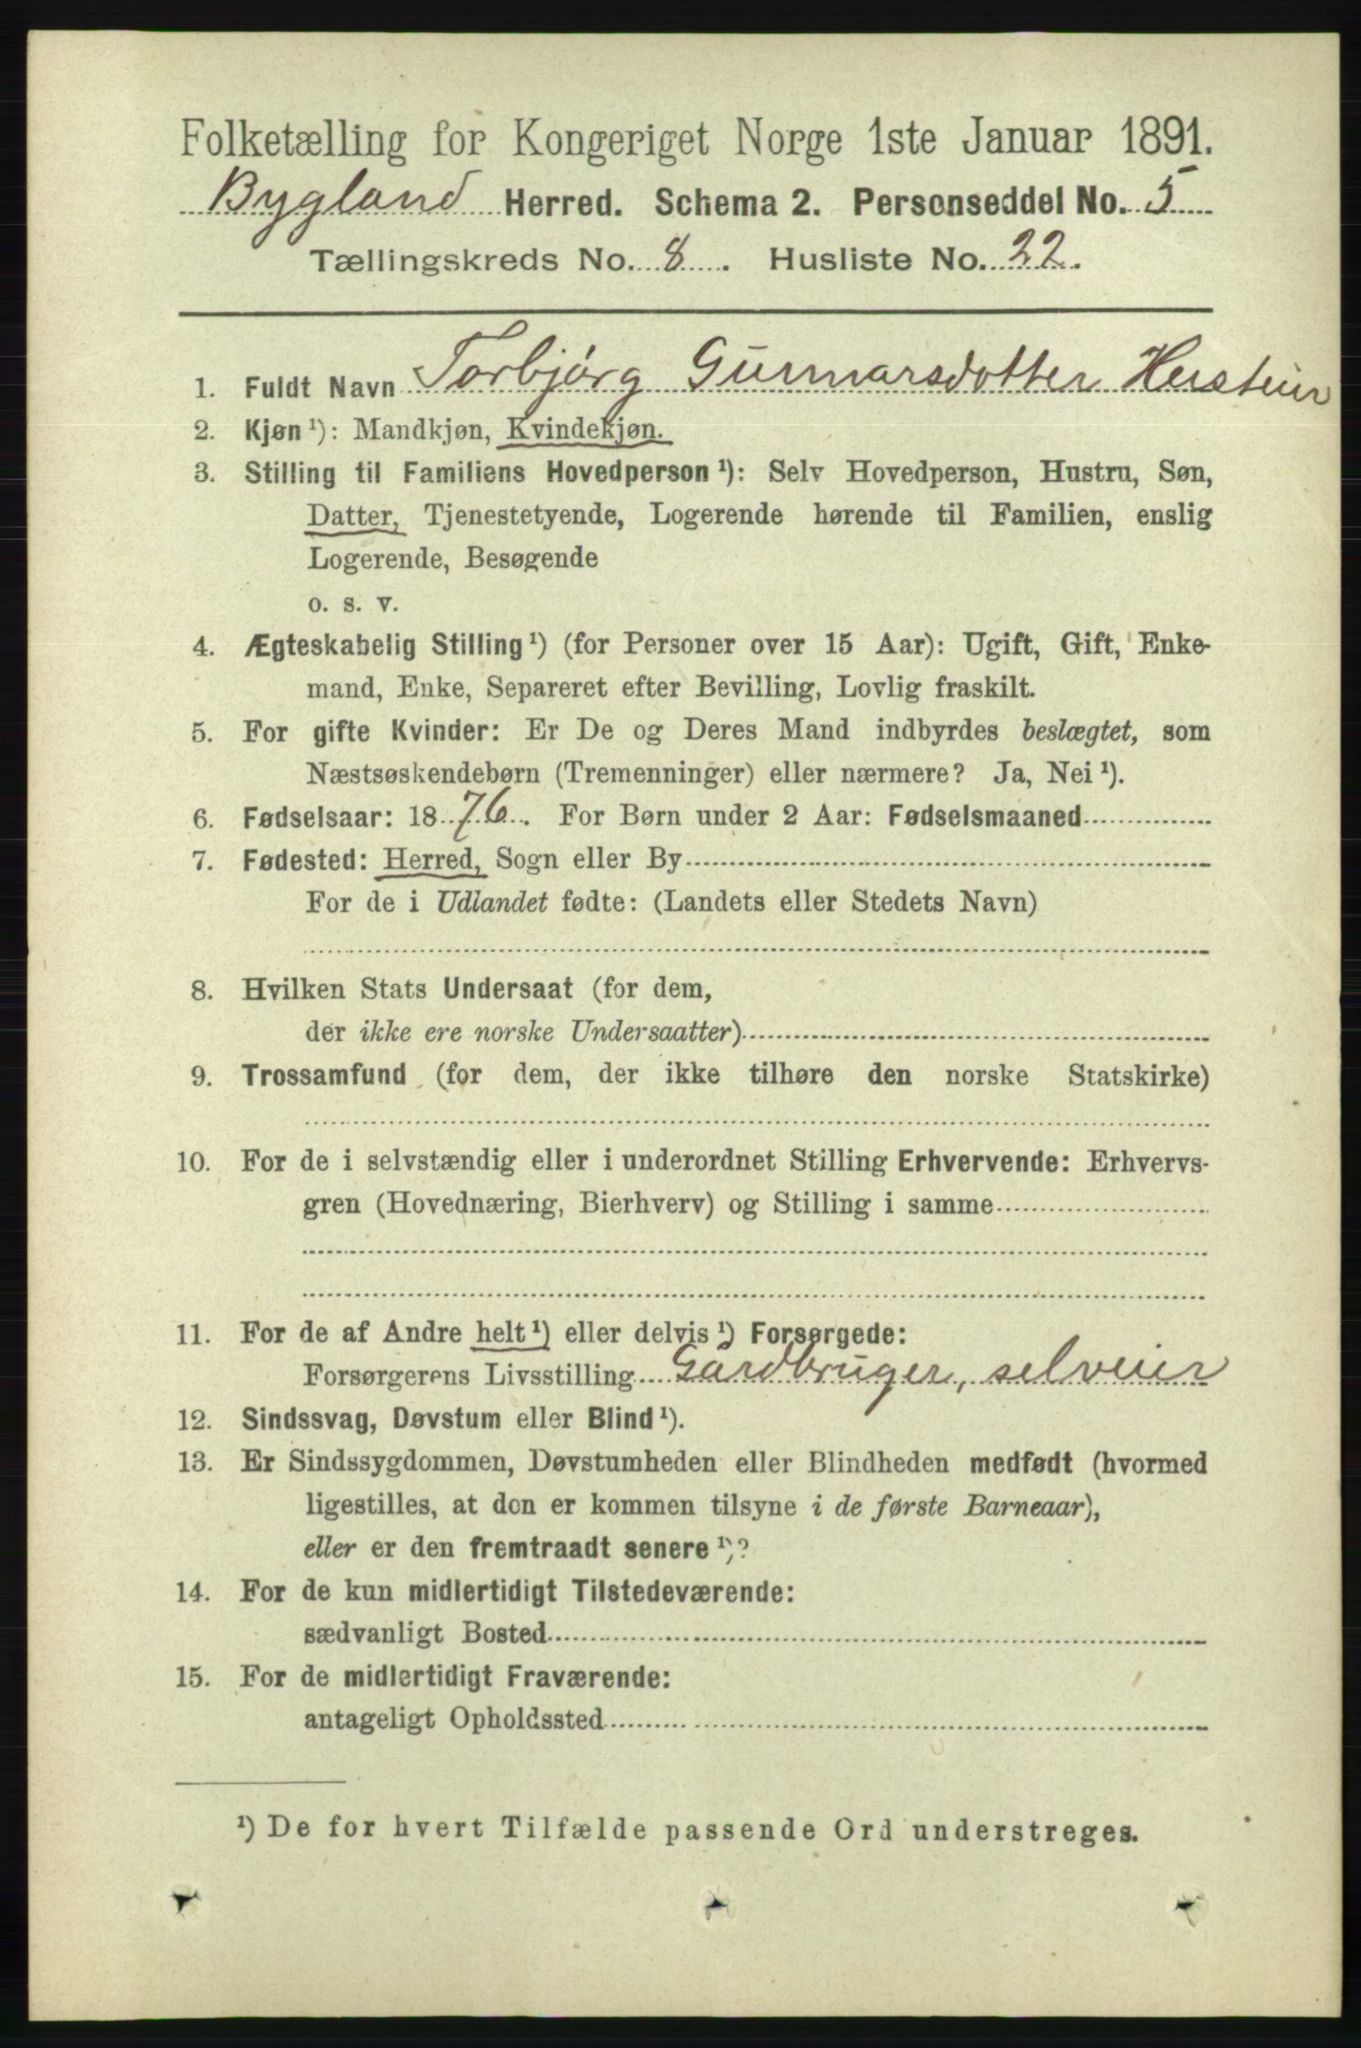 Folketælling for Kongeriget Norge 1ste Januar 1891.
Bygland Herred. Schema 2. Personseddel No. 5
Tællingskreds No. 8. Husliste No. 22.
1. Fuldt Navn Torbjörg Gunnarsdotter Herstein
2. Kjøn ¹): Mandkjøn, Kvindekjøn.
3. Stilling til Familiens Hovedperson ¹): Selv Hovedperson, Hustru, Søn,
Datter, Tjenestetyende, Logerende hørende til Familien, enslig
Logerende, Besøgende
o. s. v.
4. Ægteskabelig Stilling ¹) (for Personer over 15 Aar): Ugift, Gift, Enke-
mand, Enke, Separeret efter Bevilling, Lovlig fraskilt.
5. For gifte Kvinder: Er De og Deres Mand indbyrdes beslægtet, som
Næstsøskendebørn (Tremenninger) eller nærmere? Ja, Nei ¹).
6. Fødselsaar: 1876. For Børn under 2 Aar: Fødselsmaaned
7. Fødested: Herred, Sogn eller By
For de i Udlandet fødte: (Landets eller Stedets Navn)
8. Hvilken Stats Undersaat (for dem,
der ikke ere norske Undersaatter)
9. Trossamfund (for dem, der ikke tilhøre den norske Statskirke)
10. For de i selvstændig eller i underordnet Stilling Erhvervende: Erhvervs-
gren (Hovednæring, Bierhverv) og Stilling i samme
11. For de af Andre helt ¹) eller delvis ¹) Forsørgede:
Forsørgerens Livsstilling Gårdbruger, selveier
12. Sindssvag, Døvstum eller Blind ¹).
13. Er Sindssygdommen, Døvstumheden eller Blindheden medfødt (hvormed
ligestilles, at den er kommen tilsyne i de første Barneaar),
eller er den fremtraadt senere ¹)?
14. For de kun midlertidigt Tilstedeværende:
sædvanligt Bosted
15. For de midlertidigt Fraværende:
antageligt Opholdssted
¹) De for hvert Tilfælde passende Ord understreges.